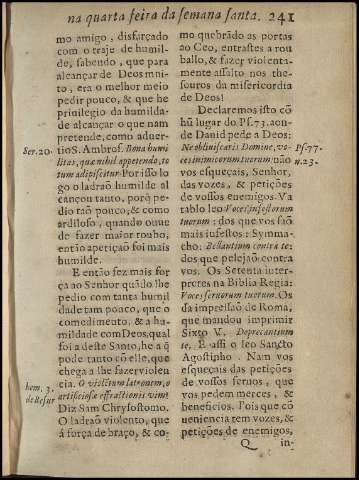 na quarta feira da semana santa. 241
mo amigo, disfarçado
com o traje de humil-
de, sabendo, que para
alcançar de Deos mui-
to, era o melhor meio
pedir pouco, & que he
privilegio da humilda-
de alcançar o que nam
pretende, como aduer-
tio S. Ambros. Bona humi
Ser. 20.
litas, quæ nihil appetendo, to
tum adipiscitur. Por isso lo
go o ladraõ humilde al
cançou tanto, porq̃ pe-
dio taõ pouco; & como
ardiloso, quando ouue
de fazer maior roubo,
entaõ apetiçaõ foi mais
humilde.
E então fez mais for
ça ao Senhor quãdo lhe
pedio com tanta humil
dade tam pouco, que o
comedimento, & a hu-
mildade com Deos, qual
foi a deste Santo, he a q̃
pode tanto cõ elle, que
chega a lhe fazer violen
cia. O violentum latronem, o
hom. 3.
de Resur
artificiosæ effractionis vim:
Diz Sam Chrysostomo.
O ladraõ violento, que
á força de braço, & co-
mo quebrãdo as portas
ao Ceo, entrastes a rou
ballo, & fazer violenta-
mente assalto nos the-
souros da misericordia
de Deos!
Declaremos isto cõ
hũ lugar do Ps. 73. aon-
de Danid pede a Deos:
Ne obliuiscaris Domine, vo-
Ps. 77.
ces inimicorum tuorum não
n. 23.
vos esqueçais, Senhor,
das vozes, & petições
de vossos enemigos. Va
tablo leo Voces infestorum
tuorum: dos que vos saõ
mais infestos: Symma-
cho: Bellantium contra te:
dos que pelejaõ contra
vos. Os Setenta inter-
pretes na Biblia Regia:
Voces seruorum tuorum. Os
da impressaõ de Roma,
que mandou imprimir
Sixto V. Deprecantium
te. E assi o leo Sancto
Agostinho. Nam vos
esqueçais das petições
de vossos seruos, que
vos pedem merces, &
beneficios. Pois que cõ
ueniencia tem vozes, &
petições de enemigos,
Q in-